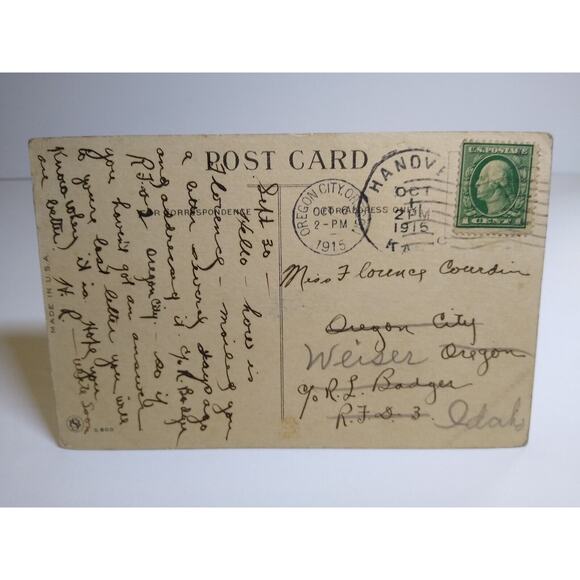 POST CARD
FOR CORRESPONDENCE
FOR ADDRESS ONLY
MADE IN U.S.A.
OREGON CITY, O
OCT 6
2-PM
1915
HANOV
OCT
1
2 PM
1915
KA
U.S. POSTAGE
1 CENT 1
Sept 30 -
Hello - how is
Florence - mailed you
a letter several days ago
and address it c/o R. Badger
R.F.D 2 Oregon City - so if
you haven't got an answer
to your last letter you will
know where it is Hope you
are better. H. R - write soon
Miss Florence Courdin
Oregon City
Weiser Oregon
c/o R. L. Badger
R.F.D. 3.
Idaho